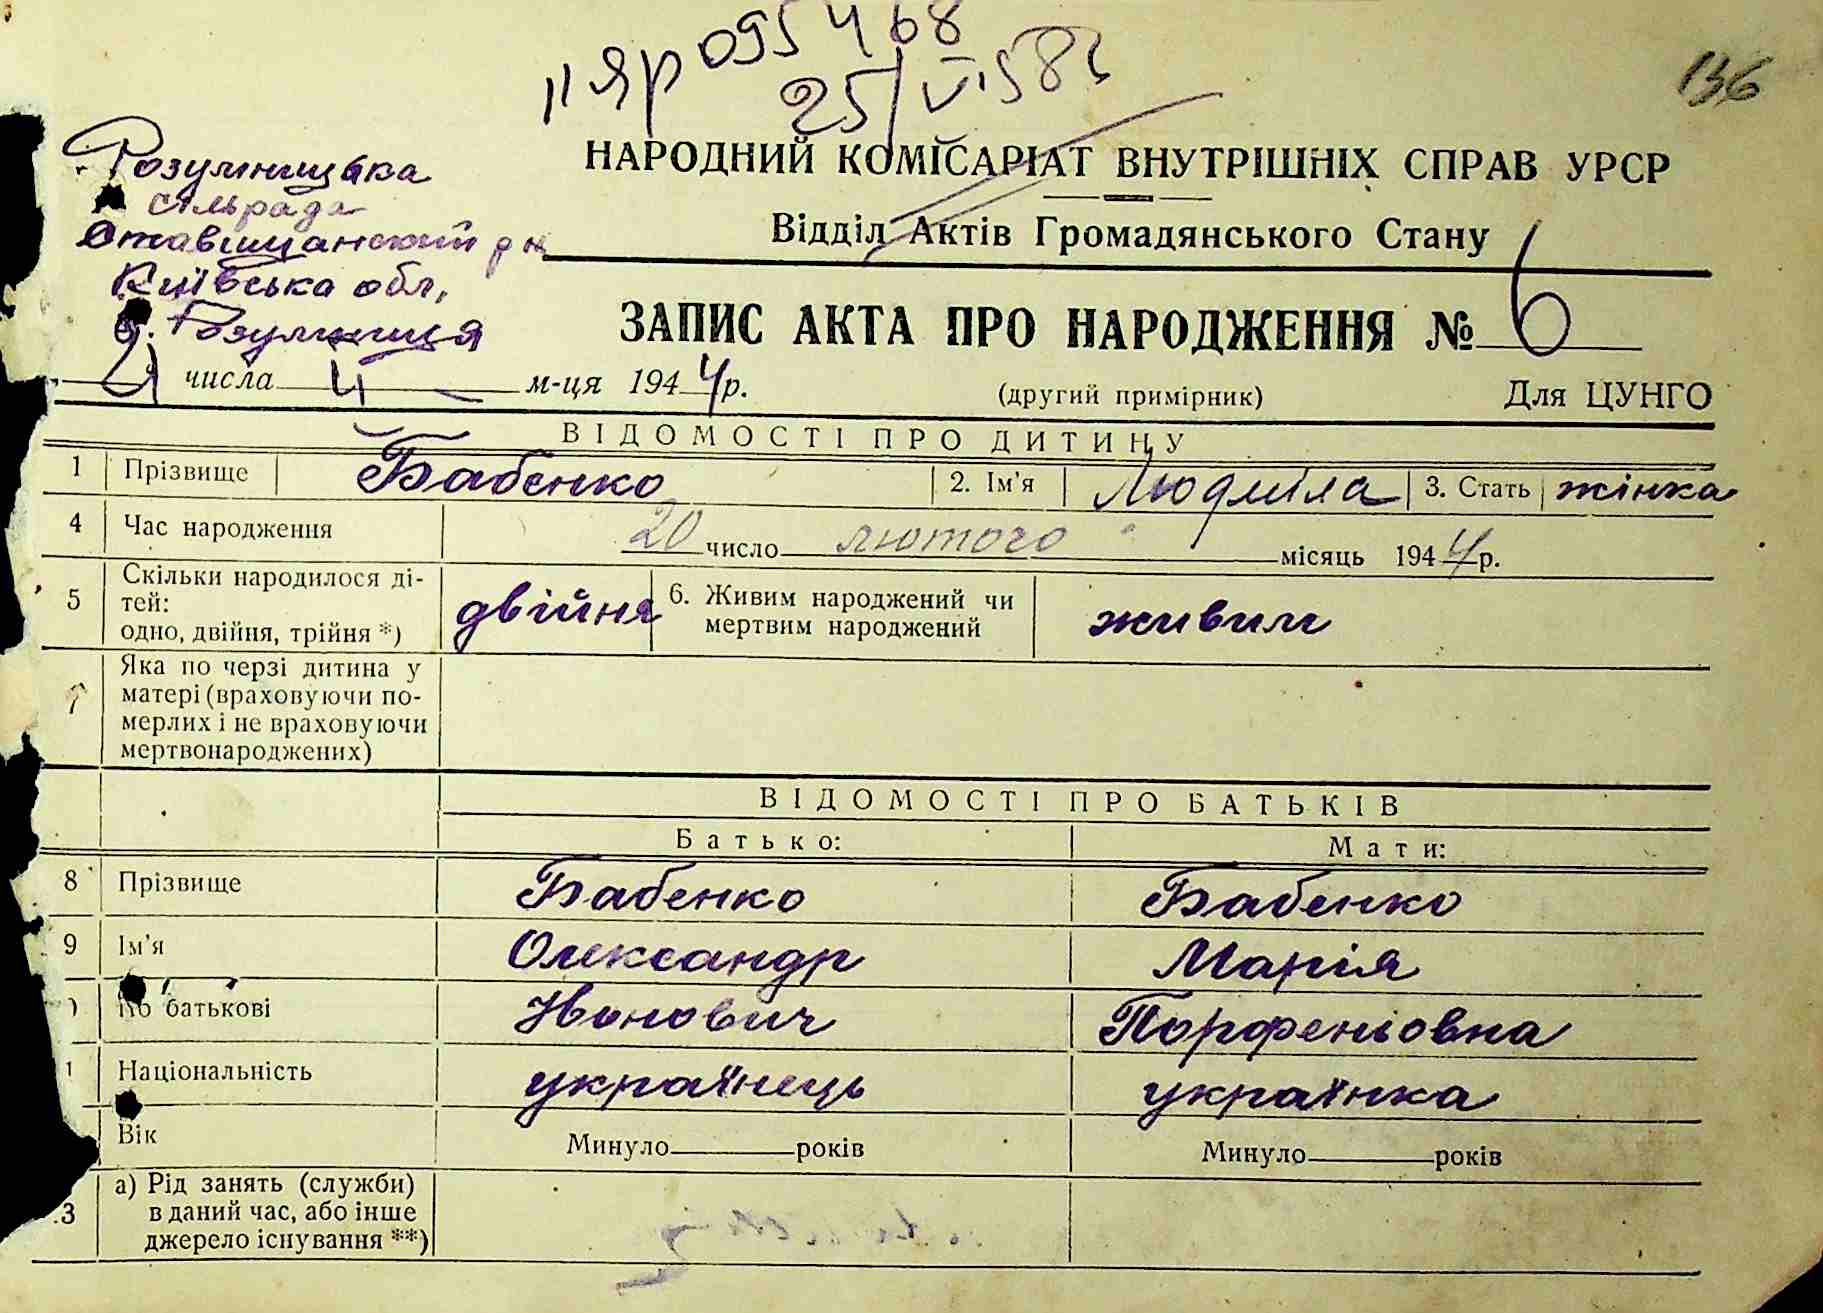 ІІ ЯР 095468
25/VI.58г
136
НАРОДНИЙ КОМІСАРІАТ ВНУТРІШНІХ СПРАВ УРСР
Відділ Актів Громадянського Стану
Розумницька
сільрада
Ставищанский рн
Київська обл,
с. Розумниця
ЗАПИС АКТА ПРО НАРОДЖЕННЯ № 6
числа м-ця 1944 р.
(другий примірник)
Для ЦУНГО
ВІДОМОСТІ ПРО ДИТИНУ
1 Прізвище Бабенко 2. Ім'я Людміла 3. Стать жінка
4 Час народження 20 число лютого місяць 1944 р.
5 Скільки народилося ді-
тей:
одно, двійня, трійня *)
двійня
6. Живим народжений чи
мертвим народжений
живим
7 Яка по черзі дитина у
матері (враховуючи по-
мерлих і не враховуючи
мертвонароджених)
ВІДОМОСТІ ПРО БАТЬКІВ
Батько: Мати:
8 Прізвище Бабенко Бабенко
9 Ім'я Олександр Марія
По батькові Іванович Порфеніовна
Національність українець українка
Вік Минуло років Минуло років
3 а) Рід занять (служби)
в даний час, або інше
джерело існування **)